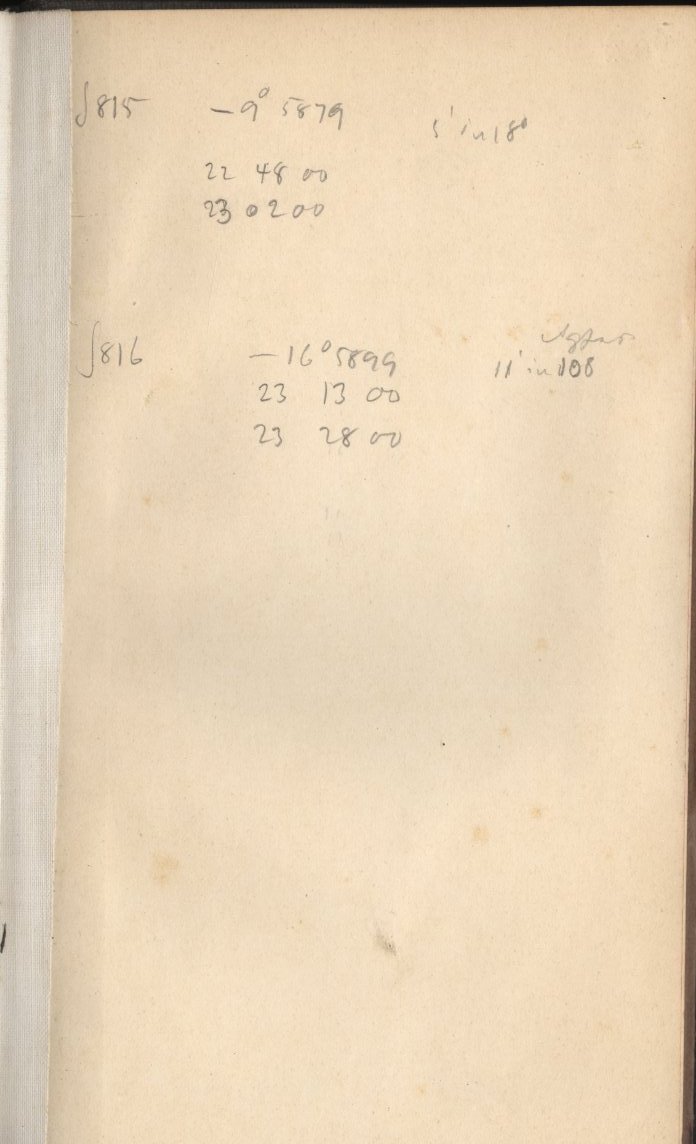 ∫815 −9° 5879 5' in 18°
22 48 00
23 02 00
∫816 −16° 5899 11' in 108
23 13 00
23 28 00